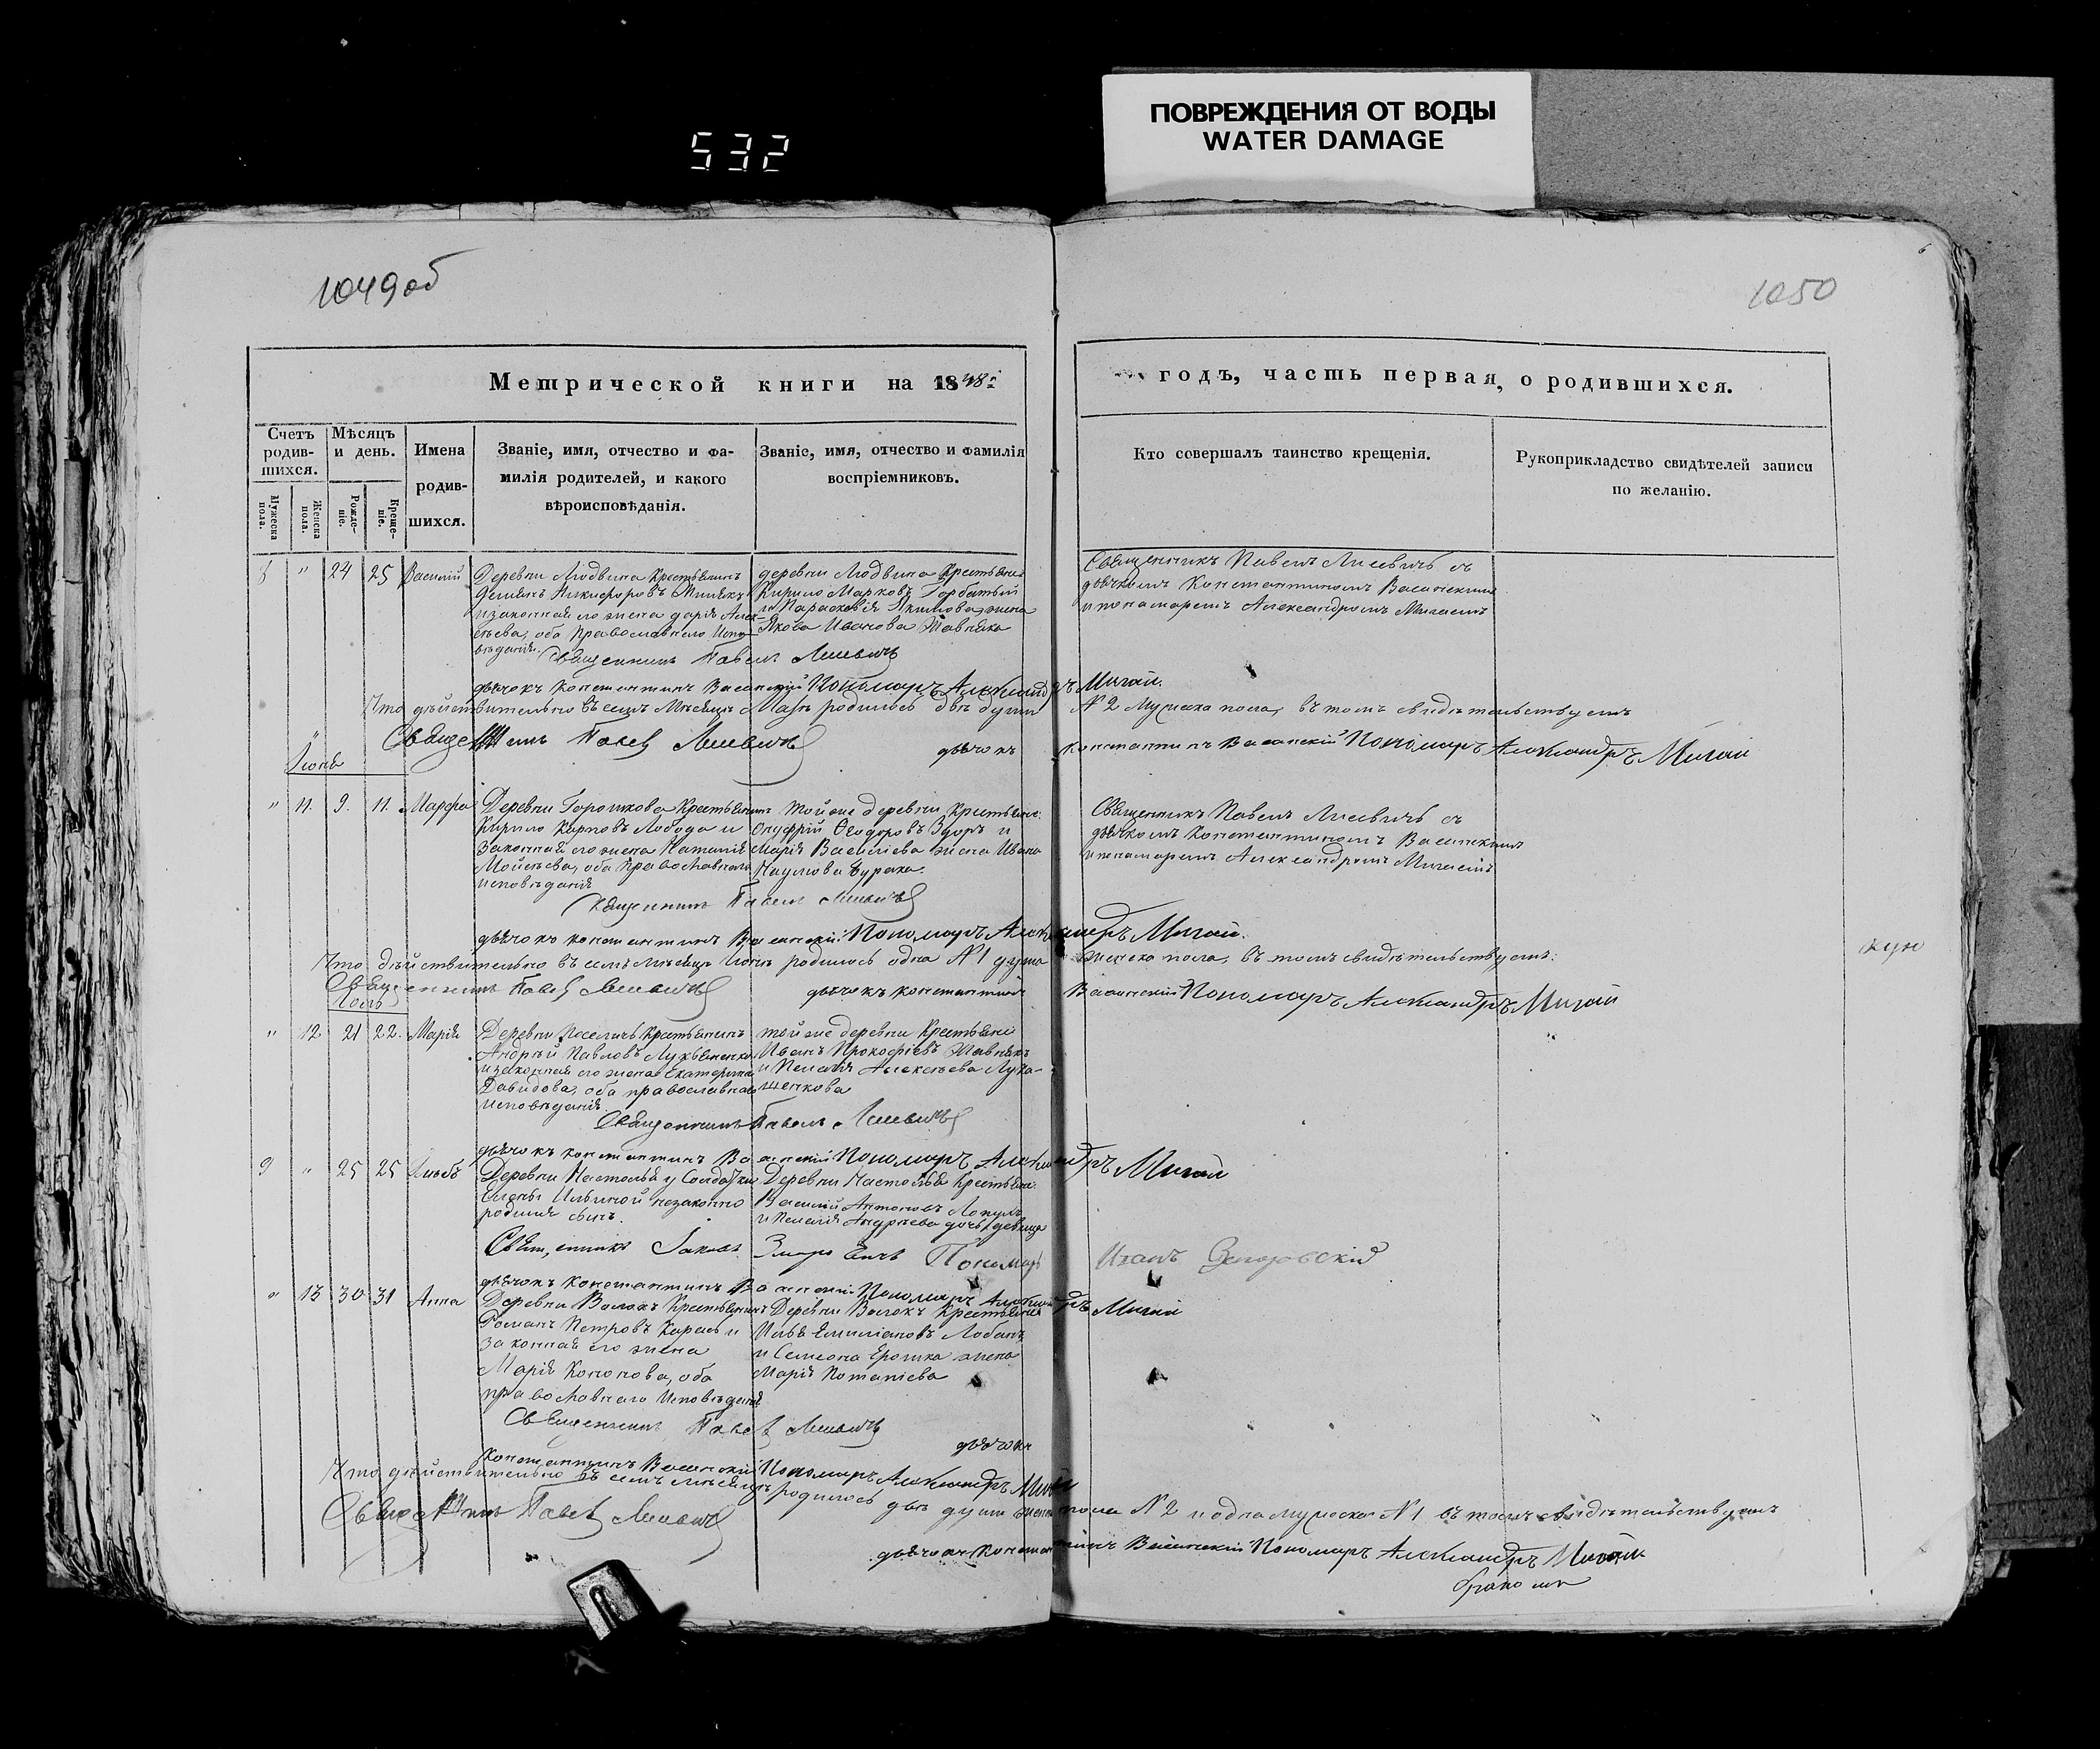 ПОВРЕЖДЕНИЯ ОТ ВОДЫ
WATER DAMAGE
532
1049 об
1050
6
Метрической книги на 1848й годъ, часть первая, о родившихся.
Счетъ родившихся.
Мужеска пола.
Женска пола.
Мѣсяцъ и день.
Рожденіе.
Крещеніе.
Имена родившихся.
Званіе, имя, отчество и фамилія родителей, и какого вѣроисповѣданія.
Званіе, имя, отчество и фамилія воспріемниковъ.
Кто совершалъ таинство крещенія.
Рукоприкладство свидѣтелей записи по желанію.
8 " 24 25 Василій
Деревни Людвина Крестьянинъ
Демьянъ Никифоровъ
и законная его жена Дарія Алек-
сѣева, оба православнаго Испо-
вѣданія.
деревни Людвина Крестьяне
Кирило Марковъ Горбатый
и Параскевія Якимова жена
Якова Иванова
Священникъ Павелъ Лисевичъ съ
дьячкомъ Константиномъ
и понамаремъ Александромъ Мигаемъ
Священникъ Павелъ Лисевичъ
дьячокъ Константинъ Пономарь Александръ Мигай.
Что дѣйствительно въ семъ Мѣсяцѣ Маѣ родилось двѣ души N 2 Мужеска пола, въ томъ свидѣтельствуемъ
Священникъ Павел Лисевичъ дьячокъ Константинъ Пономарь Александръ Мигай
Іюнь
" 11. 9. 11. Марфа
Деревни Горошкова Крестьянинъ
Кирило Карповъ Лобода и
законная его жена Наталія
Мойсѣева, оба Православнаго
исповѣданія
тойже деревни Крестьяне
Онуфрій Ѳеодоровъ Здоръ и
Марія Василіева жена Ивана
Наумова Бурака.
Священникъ Павелъ Лисевичъ съ
дьячкомъ Константиномъ
и понамаремъ Александромъ Мигаемъ
Священникъ Павелъ Лисевичъ
дьячокъ Константинъ Пономарь Александръ Мигай.
Что дѣйствительно въ семъ мѣсяцѣ Іюнѣ родилось одна N 1 душа женска пола, въ томъ свидѣтельствуемъ:
Священникъ Павел Лисевичъ дьячокъ Константинъ Пономарь Александръ Мигай
Іюль
" 12. 21 22. Марія
Крестьянинъ
Андрей Павловъ
и законная его жена Екатерина
Давидова, оба православнаго
исповѣданія
тойже деревни Крестьяне
Иванъ Прокофіевъ
и Пелагія Алексѣева Лука-
шенкова
Священникъ Павелъ Лисевичъ
дьячокъ Константинъ Пономарь Александръ Мигай
9 " 25 25 Глѣбъ
Деревни Настолья у Солдатки
Елены Ильиной незаконно
родился сынъ.
Деревни Настолья Крестьяне
Василій Антоновъ
и Пелагія Андреева дочь девица
Свящ,енникъ Іаковъ Пономарь Иванъ
дьячокъ Константинъ Пономарь Александръ Мигай
" 13 30 31 Анна
Деревни Волокъ Крестьянинъ
Романъ Петровъ Карась и
законная его жена
Марія Кононова, оба
православнаго Исповѣданія
Деревни Волокъ Крестьяне
Илья Емиліановъ Лобанъ
и Семіона Ерошка жена
Марія Потапіева
Священникъ Павел Лисевичъ
дьячокъ
Константинъ Пономарь Александръ Мигай
Что дѣйствительно въ семъ мѣсяцѣ родилось двѣ души женска пола N 2 и одна мужеска N 1 въ томъ свидѣтельствуемъ
Священникъ Павел Лисевичъ
дьячокъ Константинъ Пономарь Александръ Мигай